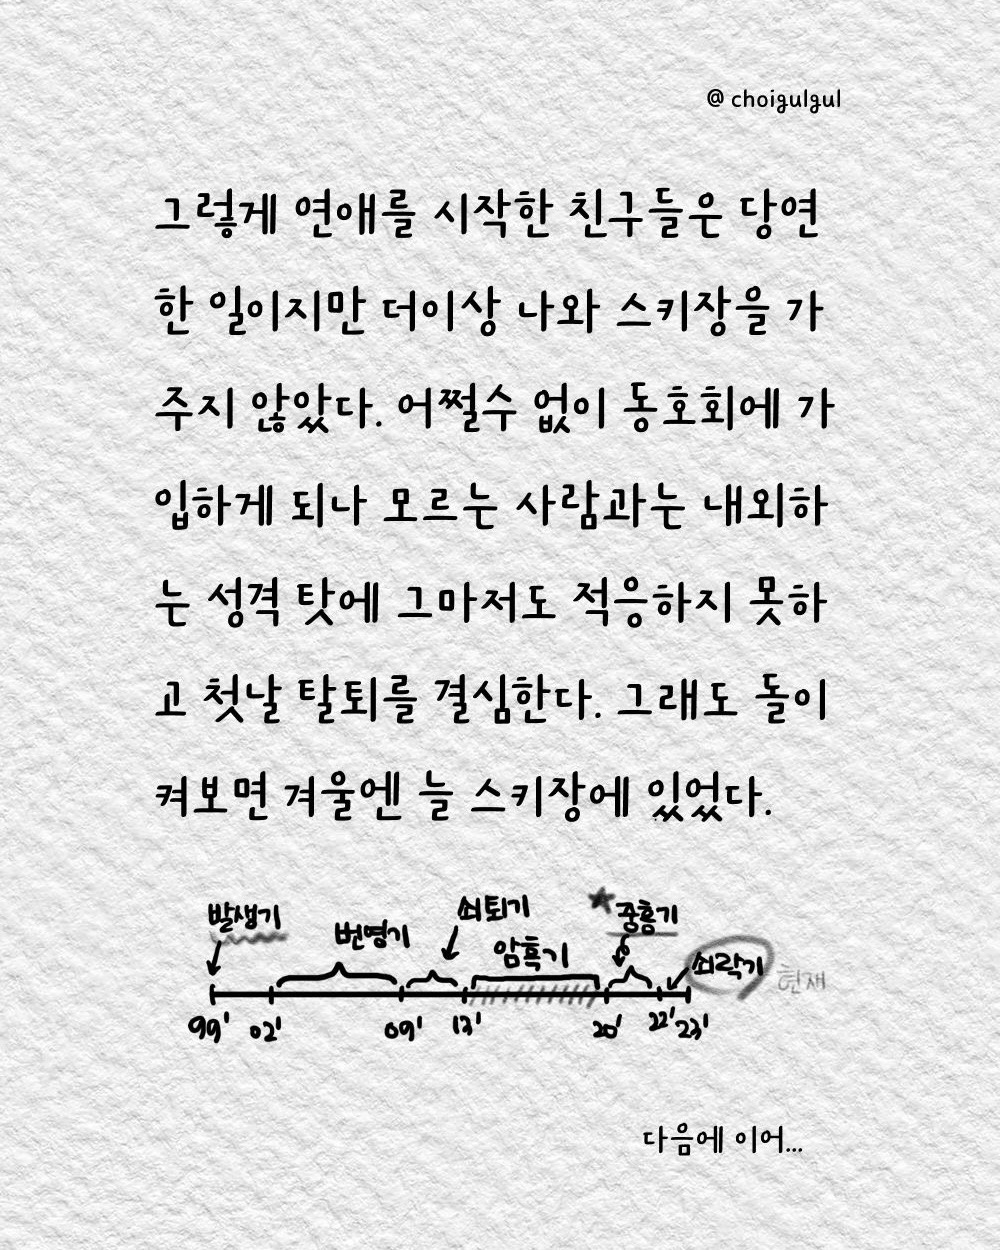 @ choigulgul
그렇게 연애를 시작한 친구들은 당연
한 일이지만 더이상 나와 스키장을 가
주지 않았다. 어쩔수 없이 동호회에 가
입하게 되나 모르는 사람과는 내외하
는 성격 탓에 그마저도 적응하지 못하
고 첫날 탈퇴를 결심한다. 그래도 돌이
켜보면 겨울엔 늘 스키장에 있었다.
발생기 번영기 쇠퇴기 암흑기 중흥기 쇠락기 현재
99' 02' 09' 13' 20' 22' 23'
다음에 이어...